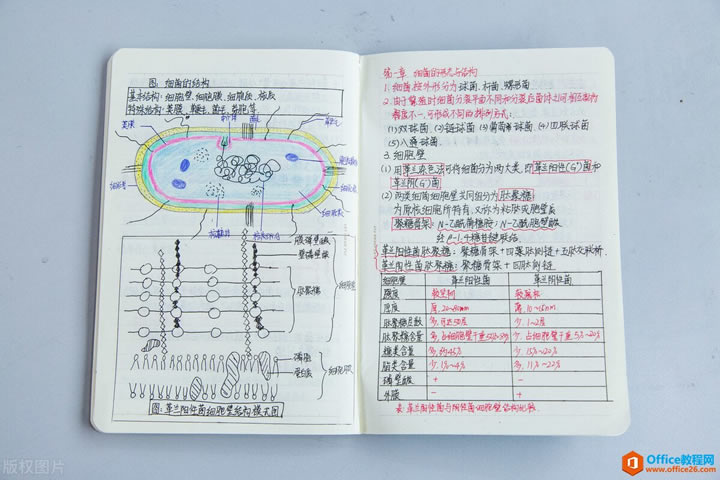 图 细菌的结构
基本结构: 细胞壁、细胞膜、细胞质、核质
特殊结构: 荚膜、鞭毛、菌毛、芽胞等
荚膜
细胞壁
细胞膜
膜磷壁酸
壁磷壁酸
肽聚糖
细胞壁
磷脂
蛋白质
细胞膜
图: 革兰阳性菌细胞壁结构模式图
第一章 细菌的形态与结构
1. 细菌按外形分为球菌、杆菌、螺形菌
2. 由于繁殖时细菌分裂平面不同和分裂后菌体之间相互黏附
程度不一,可形成不同的排列方式:
(1) 双球菌 (2) 链球菌 (3) 葡萄球菌 (4) 四联球菌
(5) 八叠球菌
3. 细胞壁
(1) 用革兰染色法可将细菌分为两大类,即革兰阳性(G⁺)菌和
革兰阴(G⁻)菌
(2) 两类细菌细胞壁共同组分为肽聚糖
为原核细胞所特有,又称为粘肽或胞壁质
聚糖骨架: N-乙酰葡糖胺、N-乙酰胞壁酸
经β-1,4糖苷键联结
革兰阳性菌肽聚糖: 聚糖骨架+四肽侧链+五肽交联桥
革兰阴性菌肽聚糖: 聚糖骨架+四肽侧链
细胞壁 革兰阳性菌 革兰阴性菌
强度 较坚韧 较疏松
厚度 厚,20~80nm 薄,10~15nm
肽聚糖层数 多,可达50层 少,1~2层
肽聚糖含量 多,占细胞壁干重50%~80% 少,占细胞壁干重5%~20%
糖类含量 多,约45% 少,15%~20%
脂类含量 少,1%~4% 多,11%~22%
磷壁酸 + -
外膜 - +
表: 革兰阳性菌与阴性菌细胞壁结构比较
版权图片
Office教程网
www.office26.com